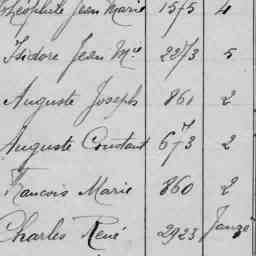 Théophile Jean Marie 1575 4
Isidore Jean Mie 2273 5
Auguste Joseph 861 2
Auguste Constant 673 2
François Marie 860 2
Charles René 2923 Janzé